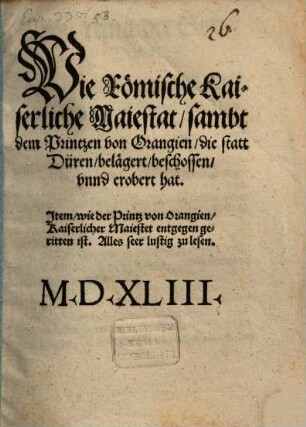 26.
Wie Römische Kai-
serliche Maiestat/sambt
dem Printzen von Orangien/die statt
Düren/belägert/beschossen/
vnnd erobert hat.
Item/wie der Printz von Orangien/
Kaiserlicher Maiestet entgegen ge-
ritten ist. Alles seer lustig zu lesen.
M·D·XLIII·